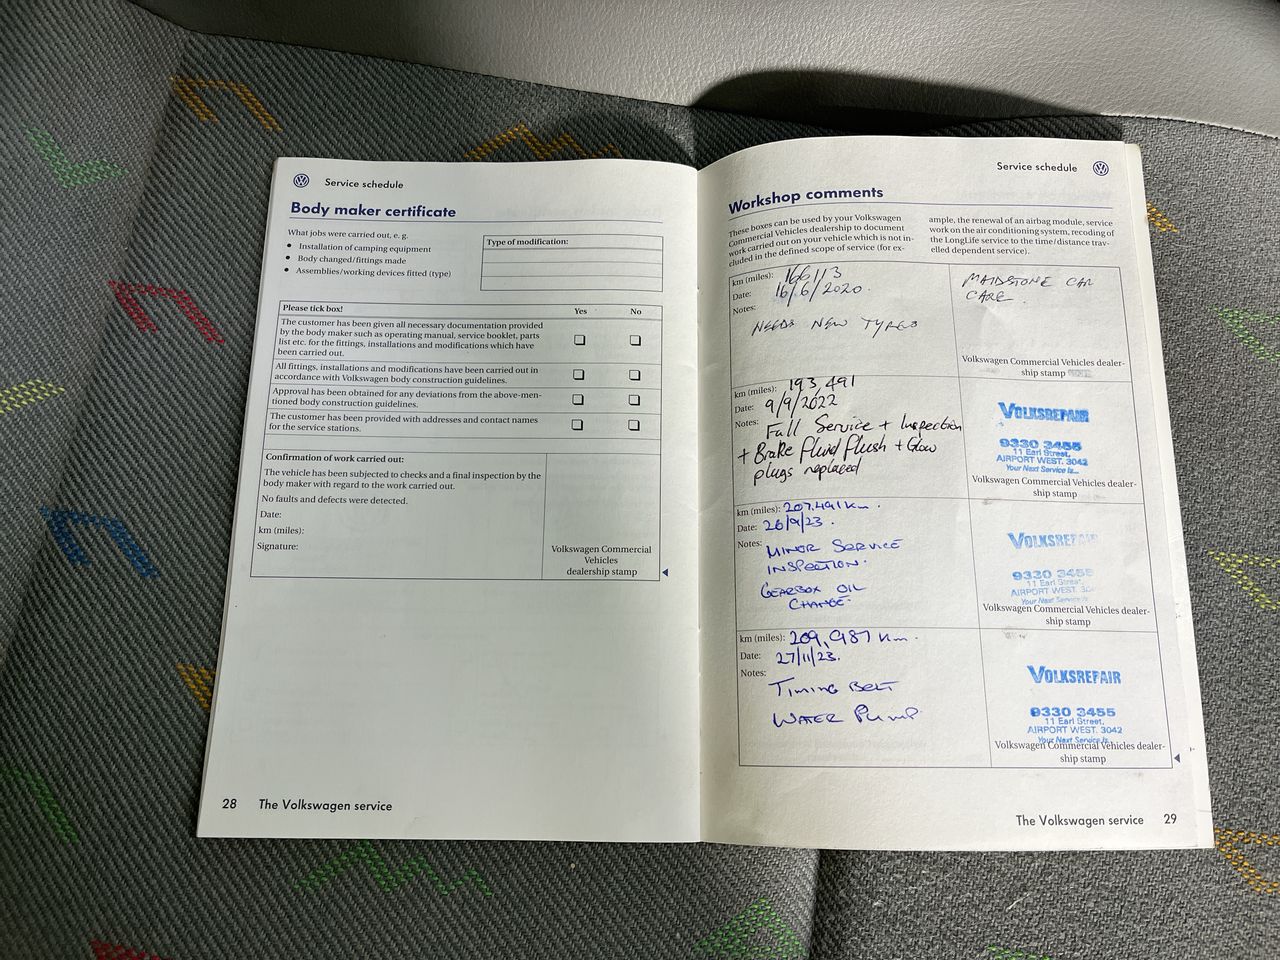 Service schedule
Body maker certificate
What jobs were carried out, e. g.
• Installation of camping equipment
• Body changed/fittings made
• Assemblies/working devices fitted (type)
Type of modification:
Please tick box!
Yes
No
The customer has been given all necessary documentation provided
by the body maker such as operating manual, service booklet, parts
list etc. for the fittings, installations and modifications which have
been carried out.
All fittings, installations and modifications have been carried out in
accordance with Volkswagen body construction guidelines.
Approval has been obtained for any deviations from the above-men-
tioned body construction guidelines.
The customer has been provided with addresses and contact names
for the service stations.
Confirmation of work carried out:
The vehicle has been subjected to checks and a final inspection by the
body maker with regard to the work carried out.
No faults and defects were detected.
Date:
km (miles):
Signature:
Volkswagen Commercial
Vehicles
dealership stamp
28 The Volkswagen service
Service schedule
Workshop comments
These boxes can be used by your Volkswagen
Commercial Vehicles dealership to document
work carried out on your vehicle which is not in-
cluded in the defined scope of service (for ex-
ample, the renewal of an airbag module, service
work on the air conditioning system, recoding of
the LongLife service to the time/distance trav-
elled dependent service).
km (miles): 166113
Date: 16/6/2020.
Notes:
NEEDS NEW TYRES
MAIDSTONE CAR
CARE.
Volkswagen Commercial Vehicles dealer-
ship stamp
km (miles): 193,491
Date: 9/9/2022
Notes: Full Service + Inspection
+ Brake fluid flush + Glow
plugs replaced
VOLKSREPAIR
9330 3455
11 Earl Street,
AIRPORT WEST. 3042
Your Next Service Is...
Volkswagen Commercial Vehicles dealer-
ship stamp
km (miles): 207,491 Km.
Date: 26/9/23.
Notes: MINOR SERVICE
INSPECTION.
GEARBOX OIL
CHANGE.
VOLKSREPAIR
9330 3455
11 Earl Street,
AIRPORT WEST. 30
Your Next Service Is
Volkswagen Commercial Vehicles dealer-
ship stamp
km (miles): 209,987 Km.
Date: 27/11/23.
Notes:
TIMING BELT
WATER PUMP
VOLKSREPAIR
9330 3455
11 Earl Street,
AIRPORT WEST. 3042
Your Next Service Is
Volkswagen Commercial Vehicles dealer-
ship stamp
The Volkswagen service 29